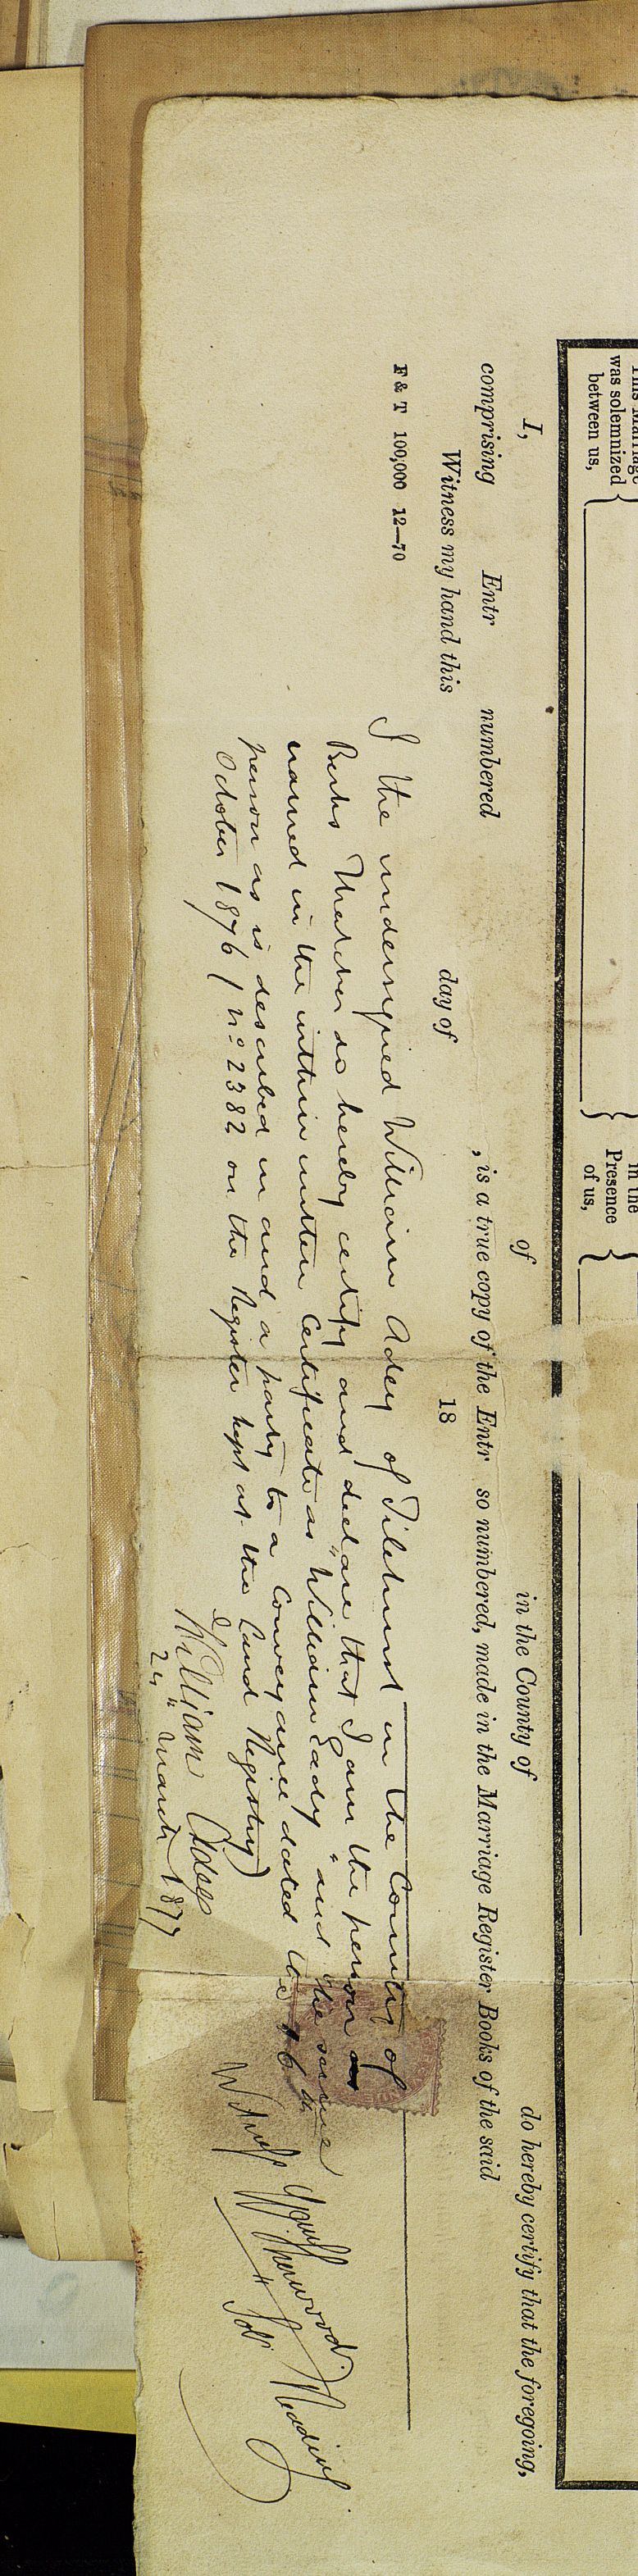 This Marriage
was solemnized
between us,
in the
Presence
of us,
I, of in the County of do hereby certify that the foregoing,
comprising Entr numbered , is a true copy of the Entr so numbered, made in the Marriage Register Books of the said
Witness my hand this day of 18
F & T 100,000 12—70
I the undersigned William Adey of Tilehurst in the County of
Berks Thatcher do hereby certify and declare that I am the person as
named in the within written Certificate as "William Eady" and the same
person as is described in and a party to a Conveyance dated the 16th
October 1876 (No 2382 on the Register kept at the Land Registry)
William Adey
24" March 1877
Witness
Sherwood
Solr Reading